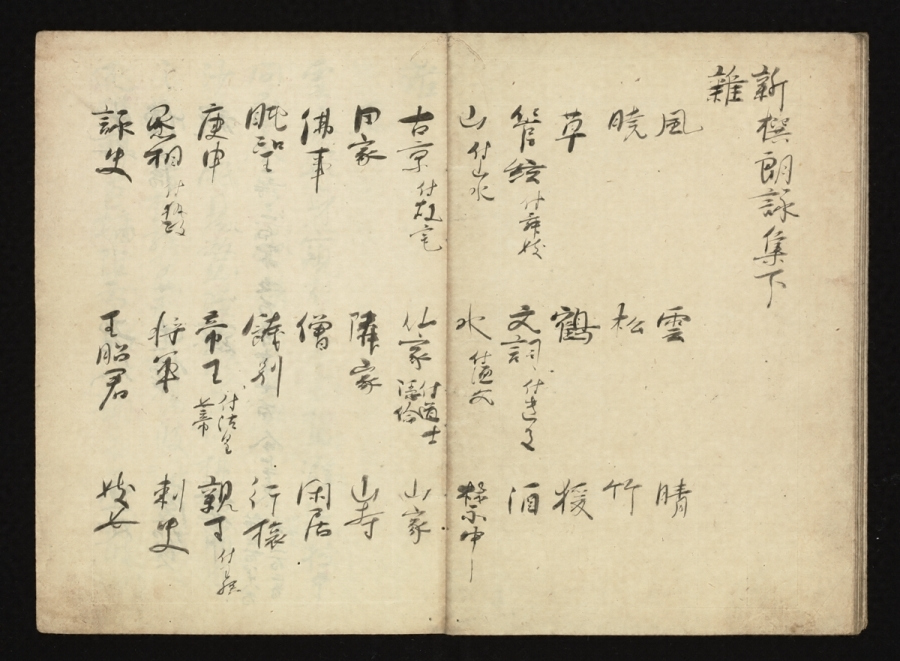 新撰朗詠集下
雑
風 雲 晴
暁 松 竹
草 鶴 猨
管絃 付舞妓 文詞 付遺文 酒
山 付山水 水 付漁父 禁中
古京 付故宅 仙家 付道士隠倫 山家
田家 隣家 山寺
佛事 僧 閑居
眺望 餞別 行旅
庚申 帝王 付法皇 親王 付王孫
丞相 付執政 将軍 刺史
詠史 王昭君 妓女